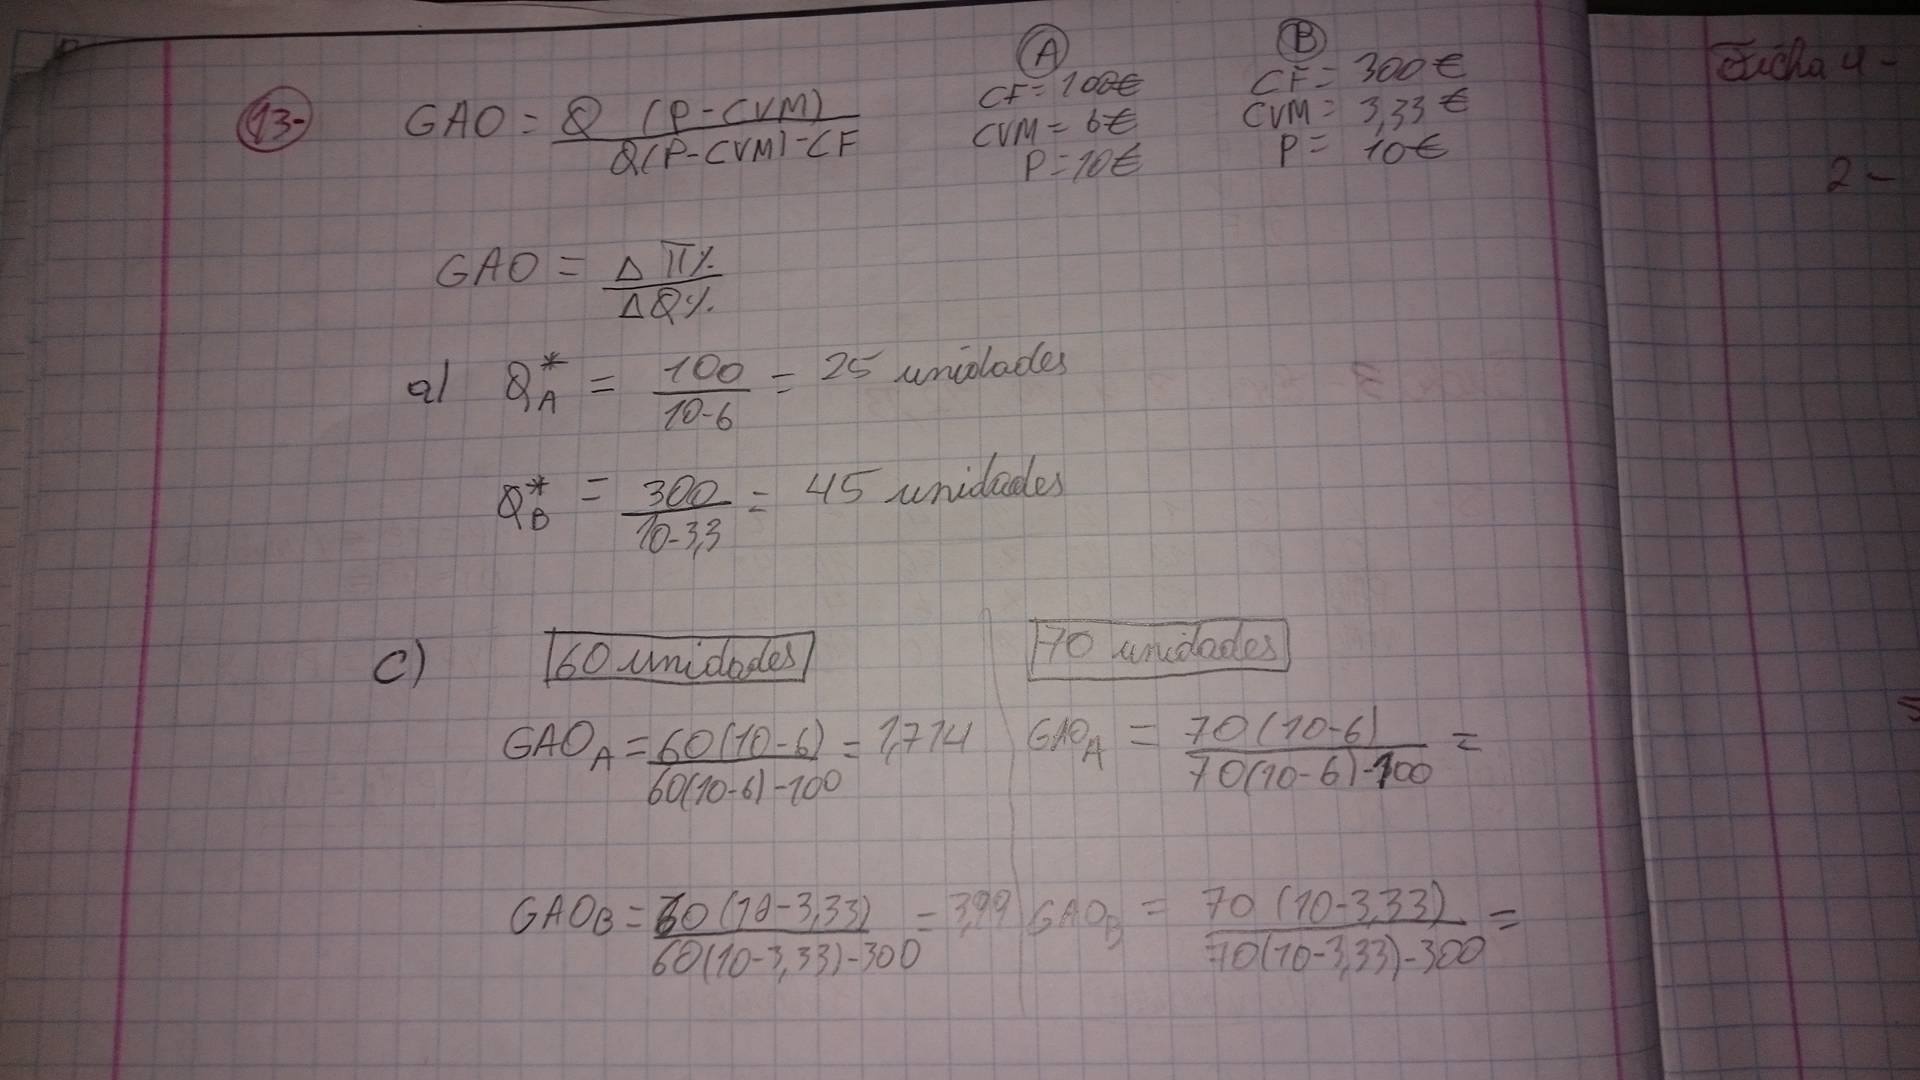 13-
GAO = Q (P-CVM) / Q(P-CVM)-CF
A
CF = 100€
CVM = 6€
P = 10€
B
CF = 300€
CVM = 3,33€
P = 10€
GAO = Δ π% / Δ Q%
a) Q*A = 100 / 10-6 = 25 unidades
Q*B = 300 / 10-3,3 = 45 unidades
c)
60 unidades
GAOA = 60(10-6) / 60(10-6)-100 = 1,714
GAOB = 60(10-3,33) / 60(10-3,33)-300 = 3,99
70 unidades
GAOA = 70(10-6) / 70(10-6)-100 =
GAOB = 70(10-3,33) / 70(10-3,33)-300 =
Ficha 4-
2-